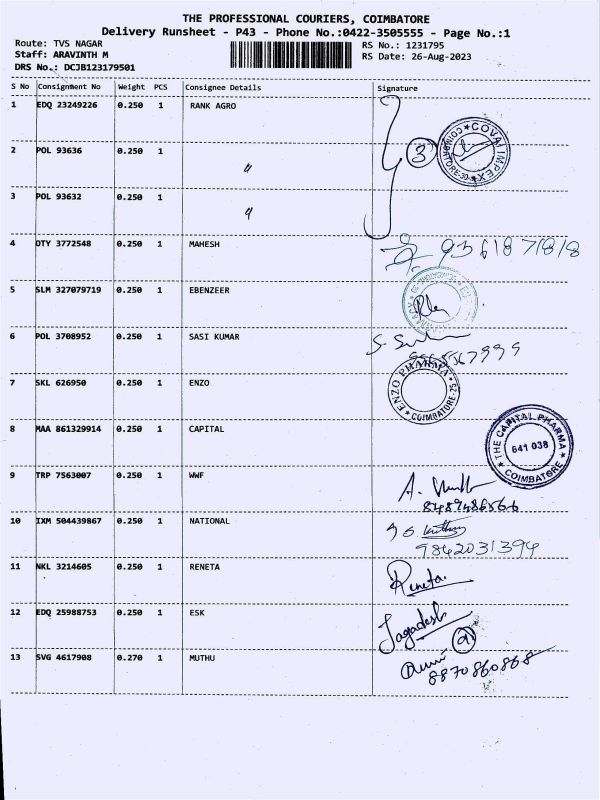 THE PROFESSIONAL COURIERS, COIMBATORE
Delivery Runsheet - P43 - Phone No.:0422-3505555 - Page No.:1
Route: TVS NAGAR
Staff: ARAVINTH M
DRS No.: DCJB123179501
RS No.: 1231795
RS Date: 26-Aug-2023
S No Consignment No Weight PCS Consignee Details Signature
1 EDQ 23249226 0.250 1 RANK AGRO
3 COVAI IMPEX COIMBATORE-30
2 POL 93636 0.250 1 〃
3 POL 93632 0.250 1 〃
4 OTY 3772548 0.250 1 MAHESH
5 SLM 327079719 0.250 1 EBENZEER
6 POL 3708952 0.250 1 SASI KUMAR
7 SKL 626950 0.250 1 ENZO ENZO PHARMA COIMBATORE-25
8 MAA 861329914 0.250 1 CAPITAL THE CAPITAL PHARMA 641 038 COIMBATORE
9 TRP 7563007 0.250 1 WWF
10 IXM 504439867 0.250 1 NATIONAL
9842031394
11 NKL 3214605 0.250 1 RENETA Reneta
12 EDQ 25988753 0.250 1 ESK Jagadesh
13 SVG 4617908 0.270 1 MUTHU
8870860868